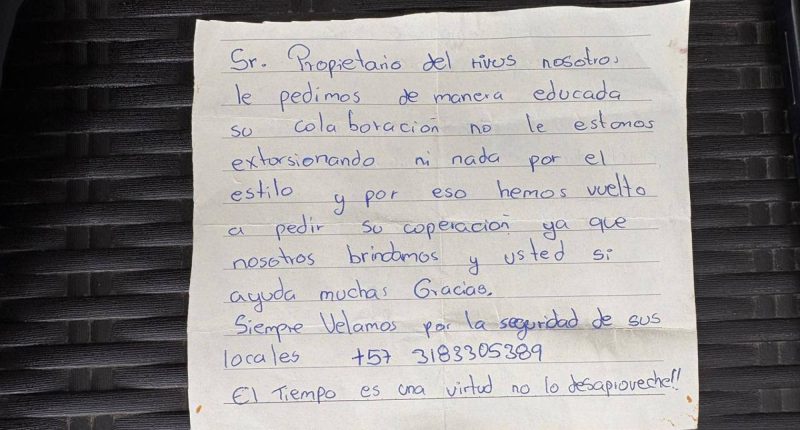 Sr. Propietario del rivus nosotros
le pedimos de manera educada
su colaboración no le estamos
extorsionando ni nada por el
estilo y por eso hemos vuelto
a pedir su coperación ya que
nosotros brindamos y usted si
ayuda muchas Gracias.
Siempre Velamos por la seguridad de sus
locales +57 3183305389
El Tiempo es una virtud no lo desaproveche!!